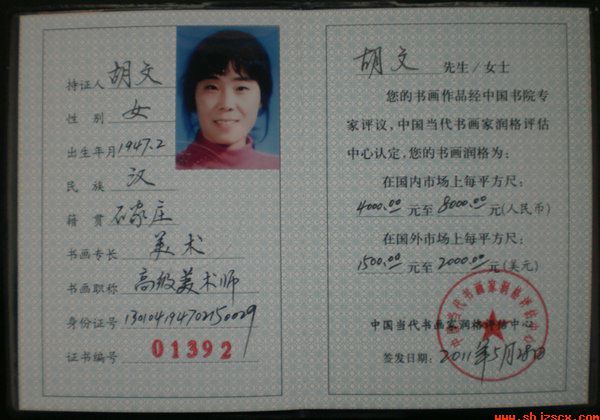 持证人 胡文
性别 女
出生年月 1947.2
民族 汉
籍贯 石家庄
书画专长 美术
书画职称 高级美术师
身份证号 130104194702150029
证书编号 01392
胡文 先生/女士
您的书画作品经中国书院专
家评议,中国当代书画家润格评估
中心认定,您的书画润格为:
在国内市场上每平方尺:
4000.00元至8000.00元(人民币)
在国外市场上每平方尺:
1500.00元至2000.00元(美元)
中国当代书画家润格评估中心
中国当代书画家润格评估中心
签发日期:2011年5月28日
www.sbjzscx.com